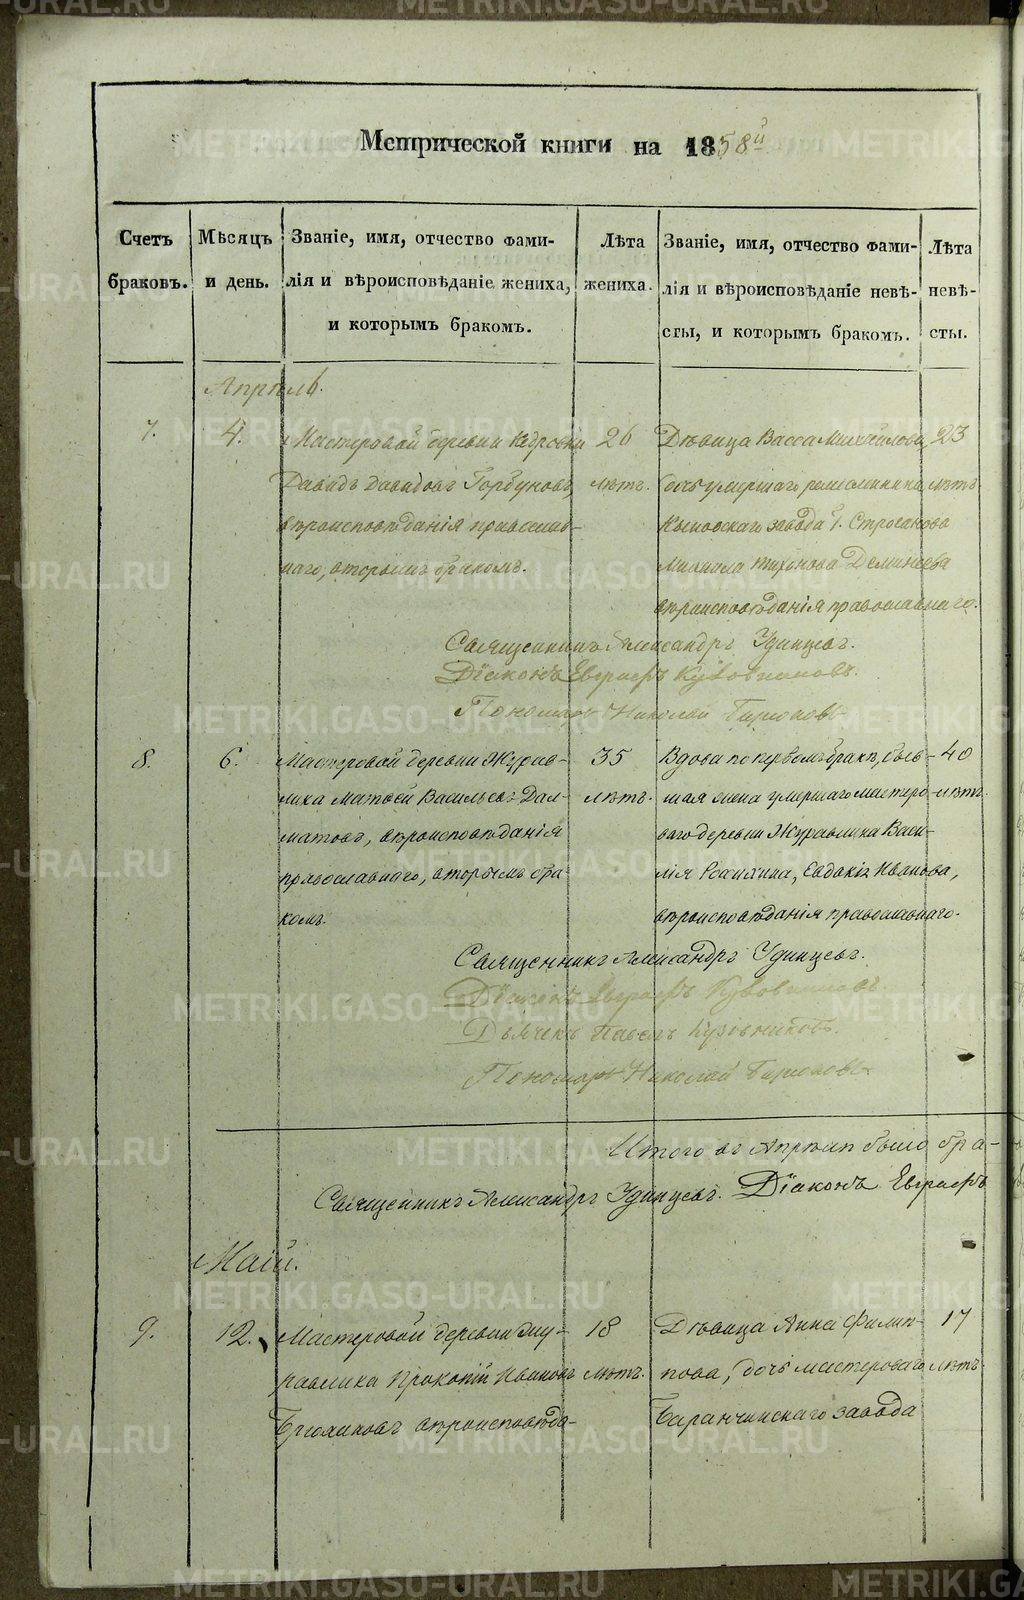 Метрической книги на 1858й
Счетъ браковъ.
Мѣсяцъ и день.
Званіе, имя, отчество фами-
лія и вѣроисповѣданіе жениха,
и которымъ бракомъ.
Лѣта жениха.
Званіе, имя, отчество фами-
лія и вѣроисповѣданіе невѣ-
сты, и которымъ бракомъ.
Лѣта невѣ-
сты.
Апрѣль.
7.
4.
Мастеровой деревни Кедровки
Давидъ Давидовъ Горбуновъ,
вѣроисповѣданія православ-
наго, вторымъ бракомъ.
26
лѣтъ.
Дѣвица Васса Михайлова,
дочь умершаго
Кыновскаго завода Г. Строганова
Михаила Тихонова Деменьева
вѣроисповѣданія православнаго.
23
лѣтъ.
Священникъ Александръ Удинцевъ.
Діаконъ Евграфъ Кузовниковъ.
Пономарь Николай
8.
6.
Мастеровой деревни Журав-
лика Матвей Васильевъ Дал-
матовъ, вѣроисповѣданія
православнаго, вторымъ бра-
комъ.
35
лѣтъ.
Вдова по первомъ бракѣ, быв-
шая жена умершаго мастеро-
ваго деревни Журавлика Васи-
лія Евдокія Иванова,
вѣроисповѣданія православнаго.
40
лѣтъ.
Священникъ Александръ Удинцевъ.
Діаконъ Евграфъ Кузовниковъ.
Дьячекъ Павелъ Кузовниковъ.
Пономарь Николай
Итого въ Апрѣлѣ было бра-
Священникъ Александръ Удинцевъ. Діаконъ Евграфъ
Маій.
9.
12.
Мастеровой деревни Жу-
равлика Прокопій Ивановъ
Брюхановъ вѣроисповѣда-
18
лѣтъ.
Дѣвица Анна Филип-
пова, дочь мастероваго
Баранчинскаго завода
17
лѣтъ.
METRIKI.GASO-URAL.RU